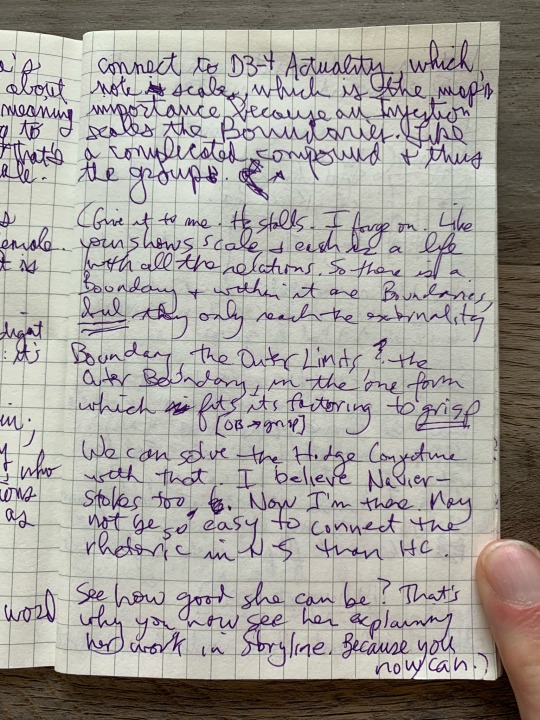 a's
about
meaning
g to
that's
ale.
s
emale.
t is
digat
: it's
in;
y who
ions
as
word
connect to D3-4 Actuality which,
note scale, which is the map's
importance because an Injection
scales the Boundaries. Like
a complicated compound + thus
the groups.
(Give it to me. He stalls. I forge on. Like
your shows scale + each is a life
with all the relations. So there is a
Boundary + within it are Boundaries,
but they only reach the externality
Boundary the Outer Limits? the
Outer Boundary, in the one form
which fits its factoring to grisp
[OB→grisp]
We can solve the Hodge Conjecture
with that. I believe Navier-
Stokes too. Now I'm there. May
not be so easy to connect the
rhetoric in N-S than HC.
See how good she can be? That's
why you now see her explaining
her work in Storyline. Because you
now can.)